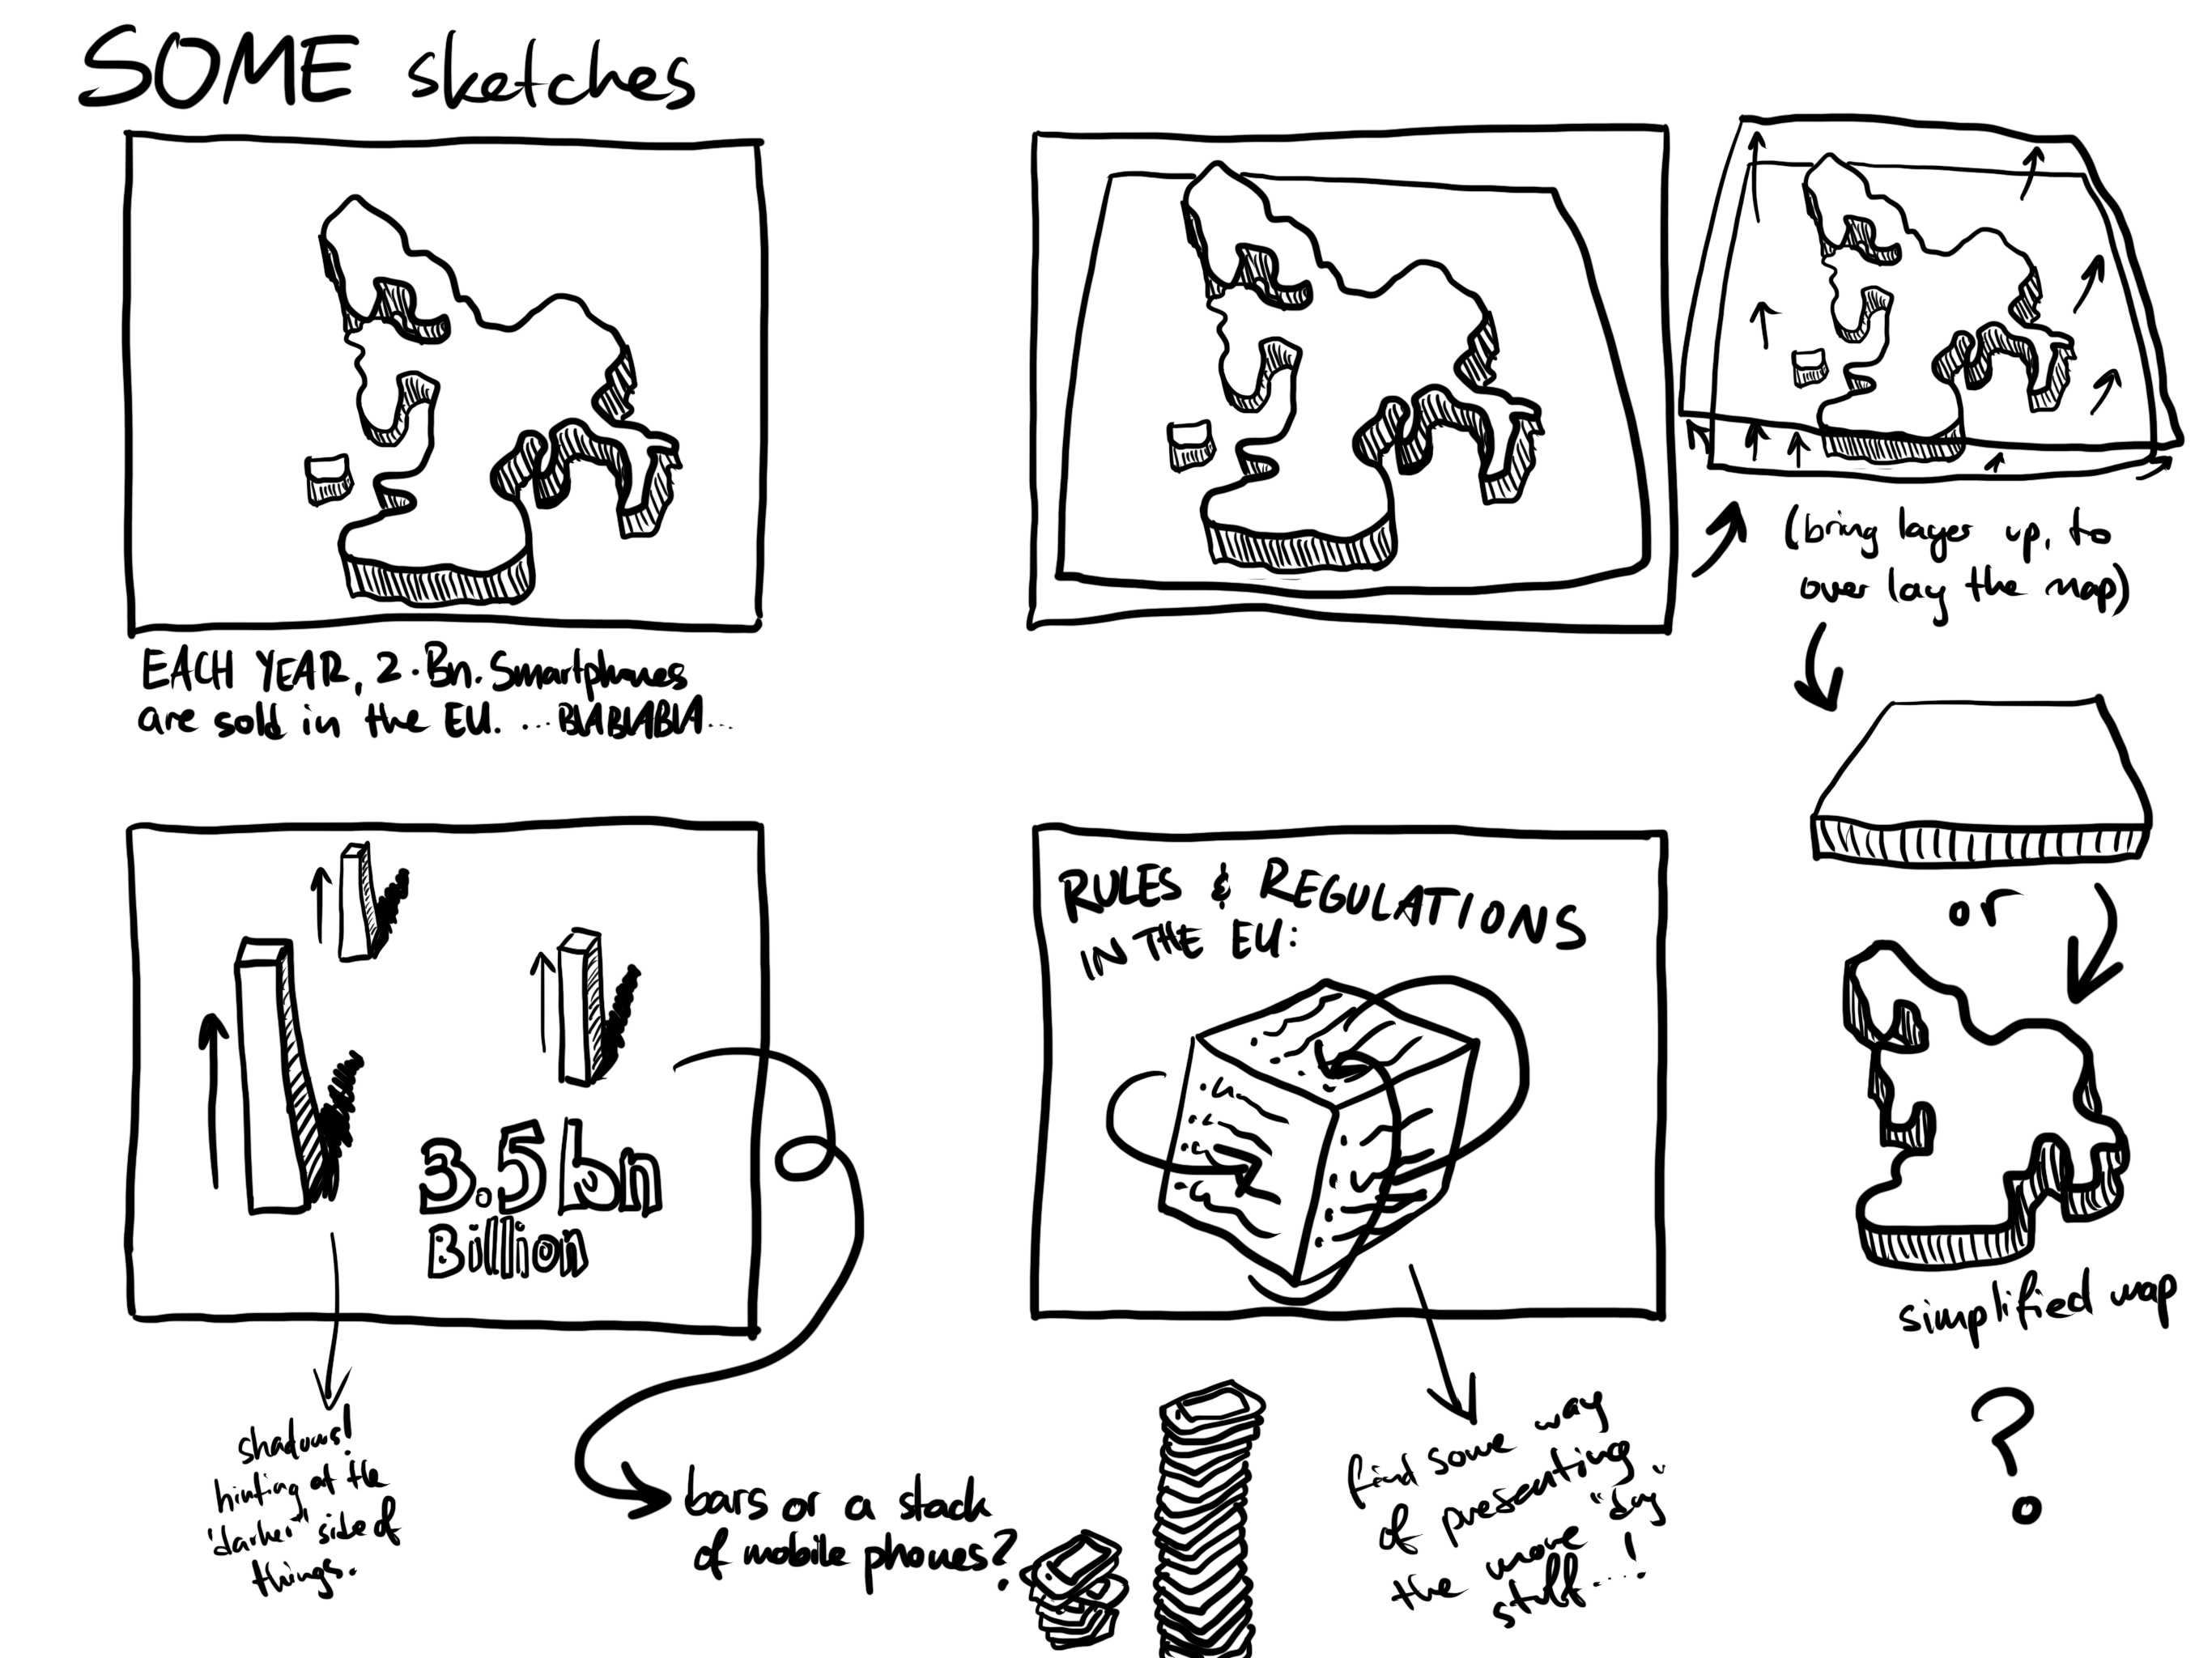 SOME sketches
EACH YEAR, 2. Bn. Smartphones
are sold in the EU. ... BLABLABLA ...
(bring layer up, to
over lay the map)
or
simplified map
?
3.5 bn
Billion
shadows!
hinting at the
"darker" side of
things.
bars or a stack
of mobile phones?
RULES & REGULATIONS
IN THE EU:
find some way
of presenting
the more "dry"
stuff....!